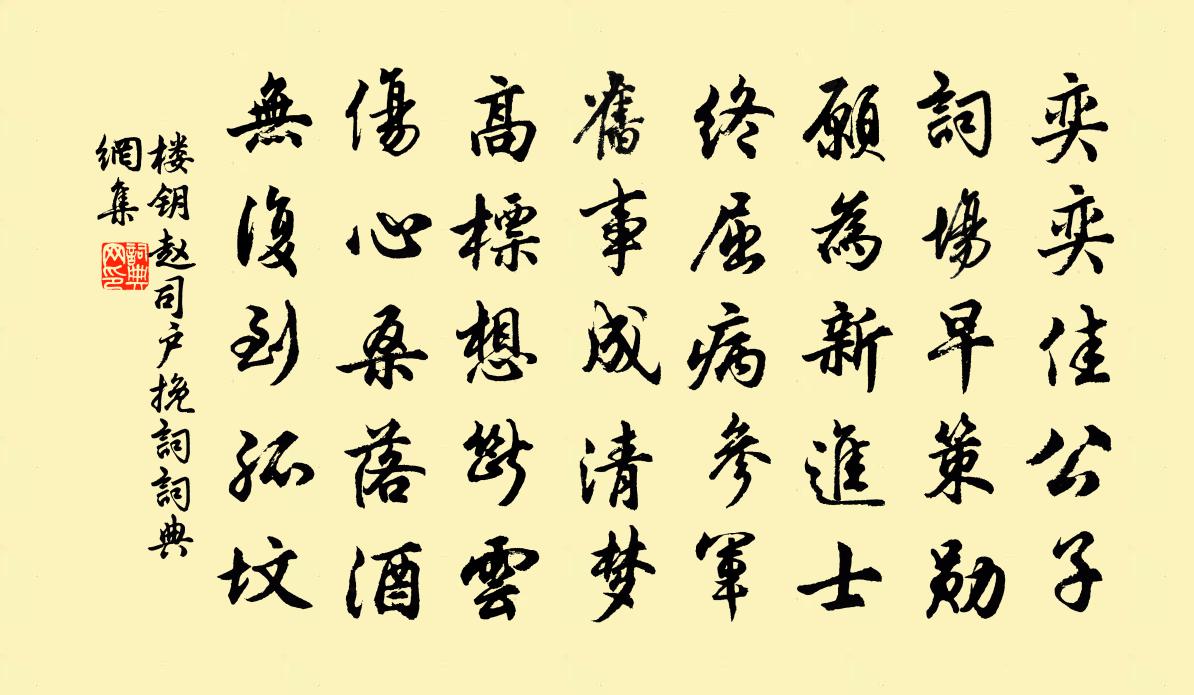 奕奕佳公子
詞場早策勋
願為新進士
终屈病參軍
舊事成清梦
高標想斷雲
傷心桑落酒
無復到孤坟
楼钥赵司户挽詞詞典
網集
詞典
网印